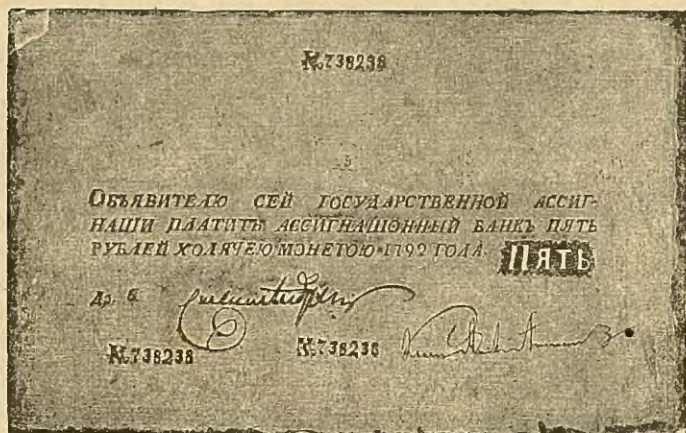 №738238
5
ОБЪЯВИТЕЛЮ СЕЙ ГОСУДАРСТВЕННОЙ АССИГ-
НАЦІИ ПЛАТИТЪ АССИГНАЦІОННЫЙ БАНКЪ ПЯТЬ
РУБЛЕЙ ХОДЯЧЕЮ МОНЕТОЮ 1792 ГОДА. ПЯТЬ
№738238 №738238